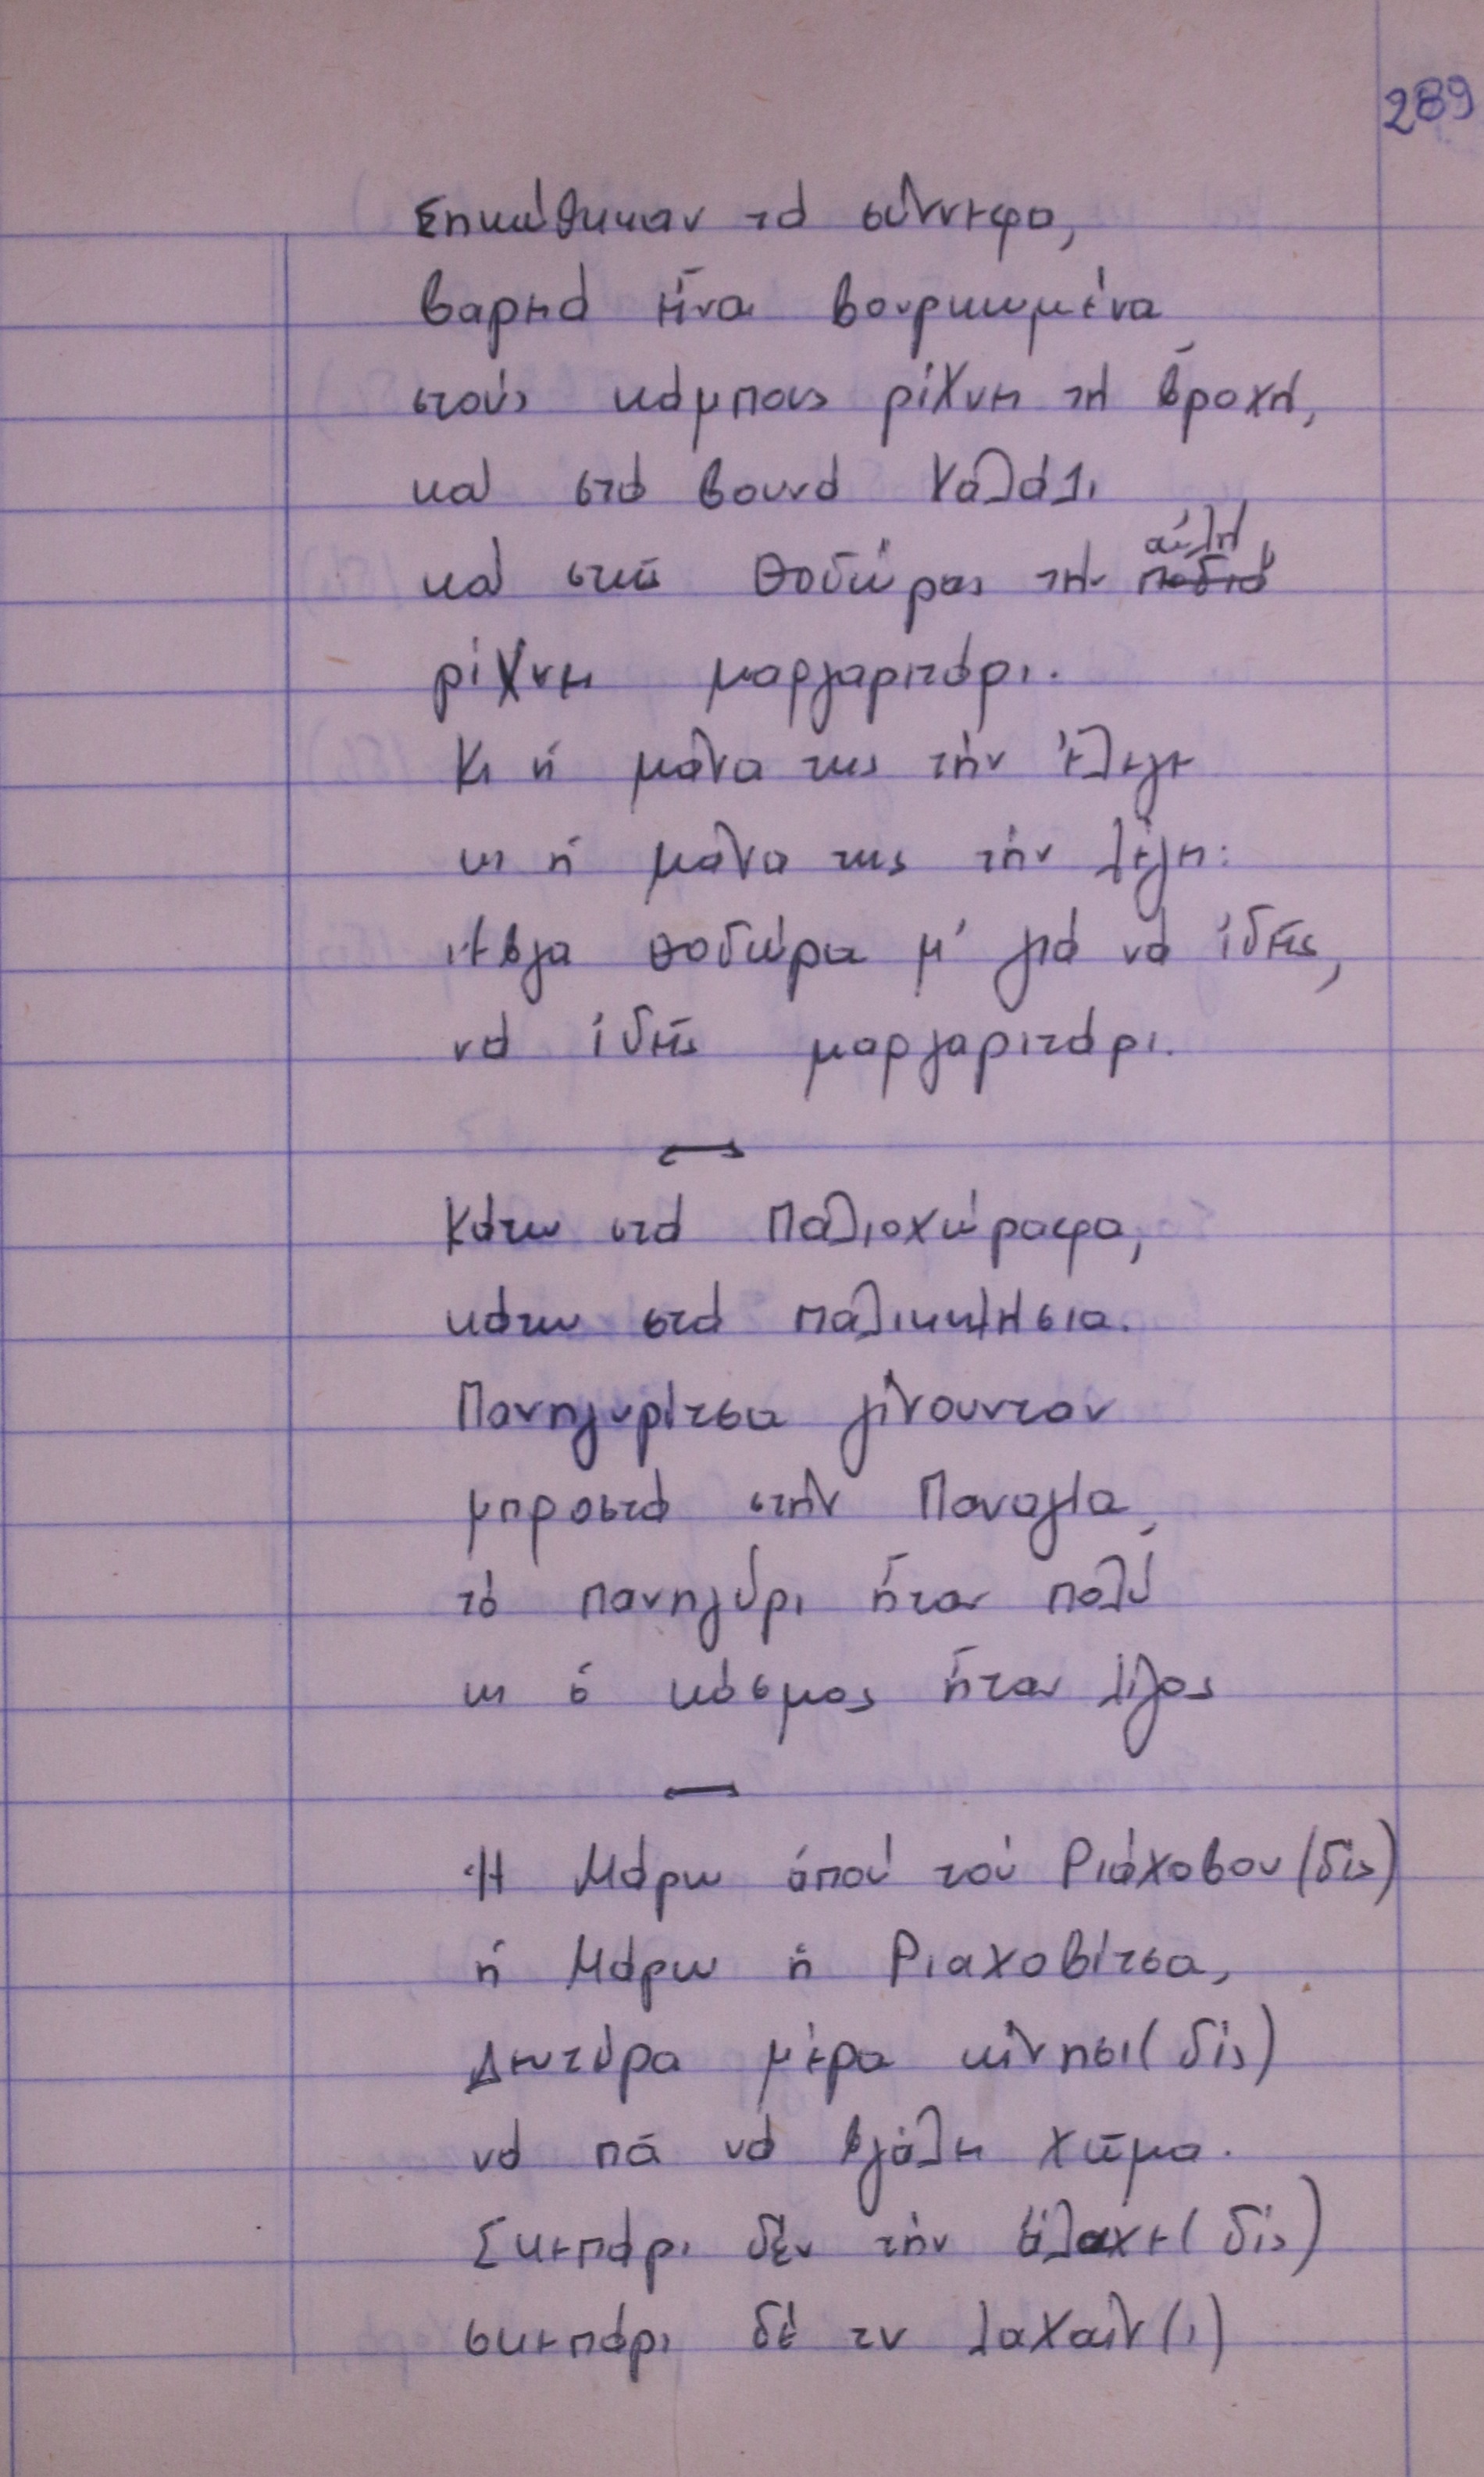 289
Σηκώθηκαν τά σύννεφα,
βαρειά εἶναι βουρκωμένα
στούς κάμπους ρίχνει τή βροχή,
καί στά βουνά χαλάζι
καί στῆς Θοδώρας τήν αὐλή
ρίχνει μαργαριτάρι.
Κι ἡ μάνα της τήν ἔλεγε
κι ἡ μάνα της τήν λέγει:
ἔβγα Θοδώρα μ' γιά νά ἰδῆς,
νά ἰδῆς μαργαριτάρι.
Κάτω στά Παλιοχώραφα,
κάτω στά παλικκλήσια.
Πανηγυρίτσα γίνουνταν
μπροστά στήν Παναγία,
τό πανηγύρι ἦταν πολύ
κι ὁ κόσμος ἦταν λίγος
Ἡ Μάρω ἀπού τού Ριάχοβου (δίς)
ἡ Μάρω ἡ Ριαχοβίτσα,
Δευτέρα μέρα κίνησι (δίς)
νά πᾶ νά βγάλει χῶμα.
Σκεπάρι δέν τήν ἔλαχε (δίς)
σκεπάρι δέ τν λαχαίν(ι)